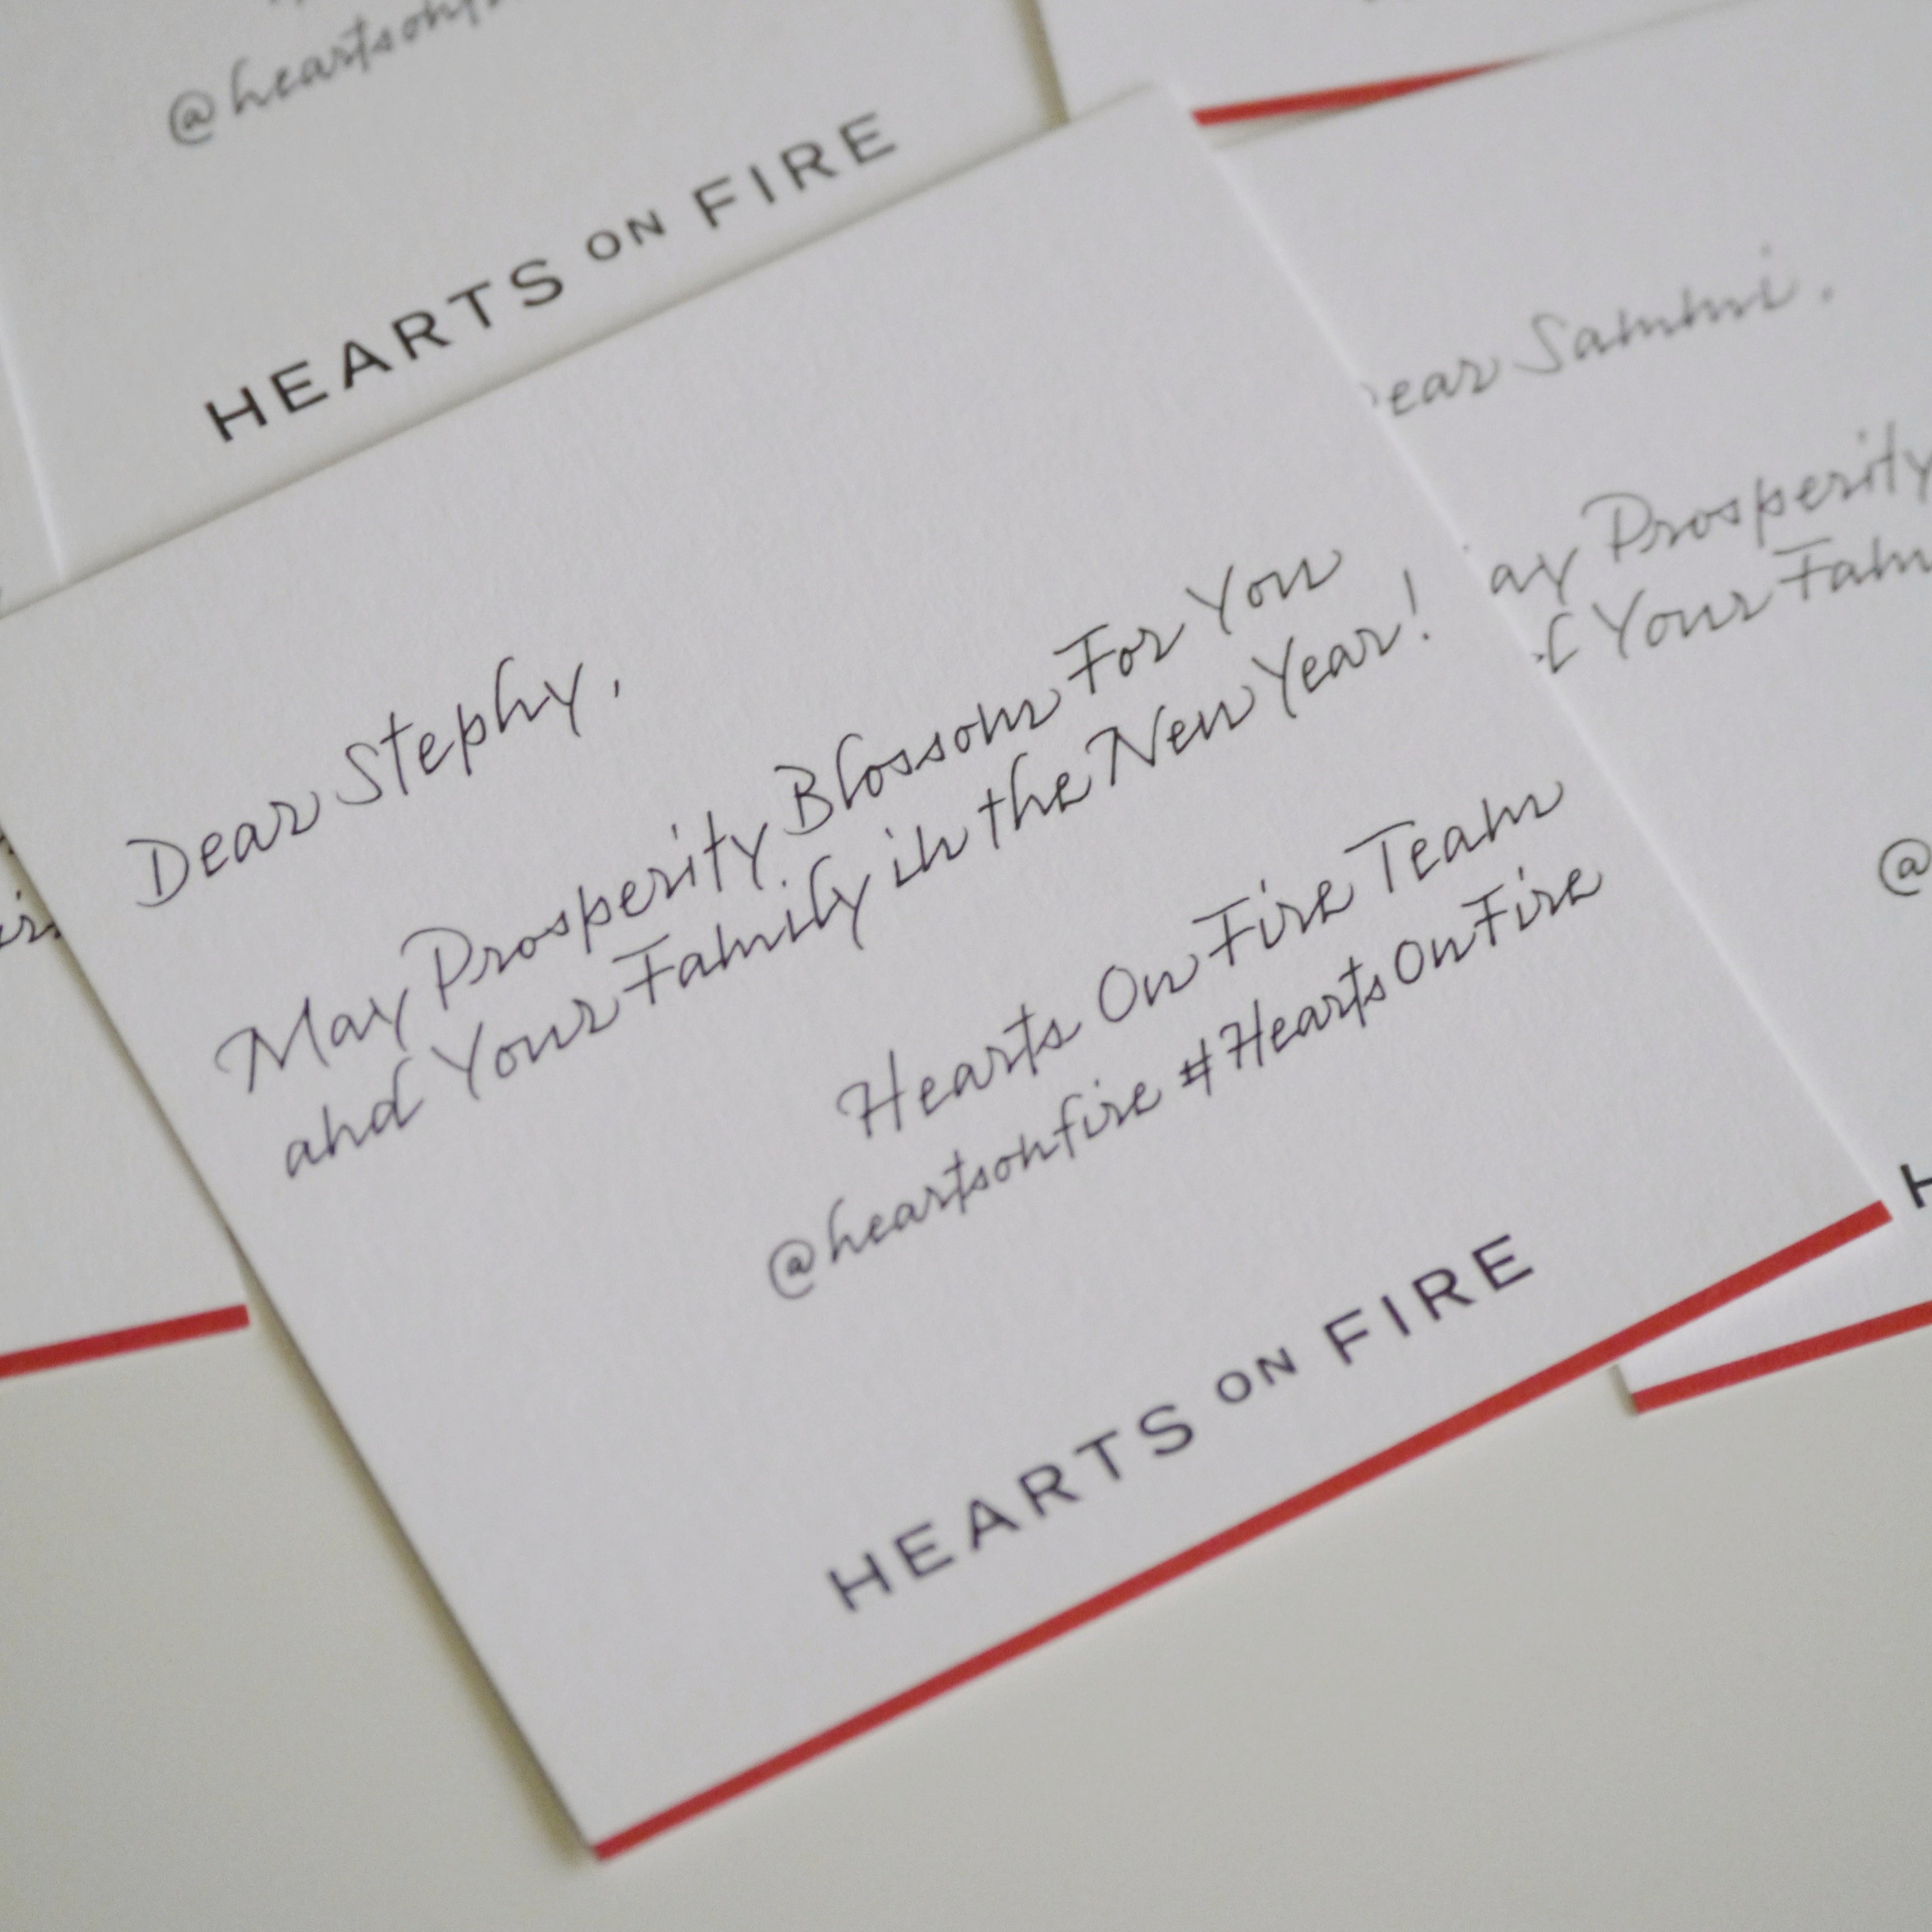 HEARTS ON FIRE
Dear Stephy,
May Prosperity Blossom For You
and Your Family in the New Year!
Hearts On Fire Team
@heartsonfire #HeartsOnFire
HEARTS ON FIRE
Sammi,
Prosperity
Your
@